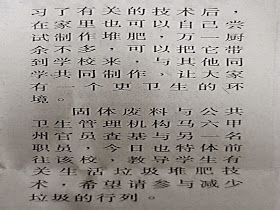 习了有关的技术后，
在家里也可以自己尝
试制作堆肥，万一厨
余不多，可以把它带
到学校来，与其他同
学共同制作，让大家
有一个更卫生的环
境。
固体废料与公共
卫生管理机构马六甲
州官员查基与另一名
职员，今日也特体前
往该校，教导学生有
关生活垃圾堆肥技
术，希望请参与减少
垃圾的行列。